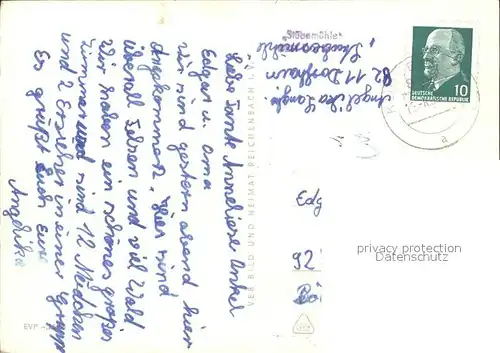 Liebe Tante Anneliese Onkel
Edgar u. Oma
wir sind gestern abend hier
Angekommen. Hier sind
überall Felsen und viel Wald
Wir haben ein schönes großes
Zimmer und sind 12 Mädchen
und 2 Erzieher in einer Gruppe
Es grüßt Euch Eure
Angelika
VEB BILD UND HEIMAT REICHENBACH I. V.
EVP
Angelika
8211 Dorfhain
"Staubemühle"
10
DEUTSCHE
DEMOKRATISCHE REPUBLIK
a
Edg
92
privacy protection
Datenschutz